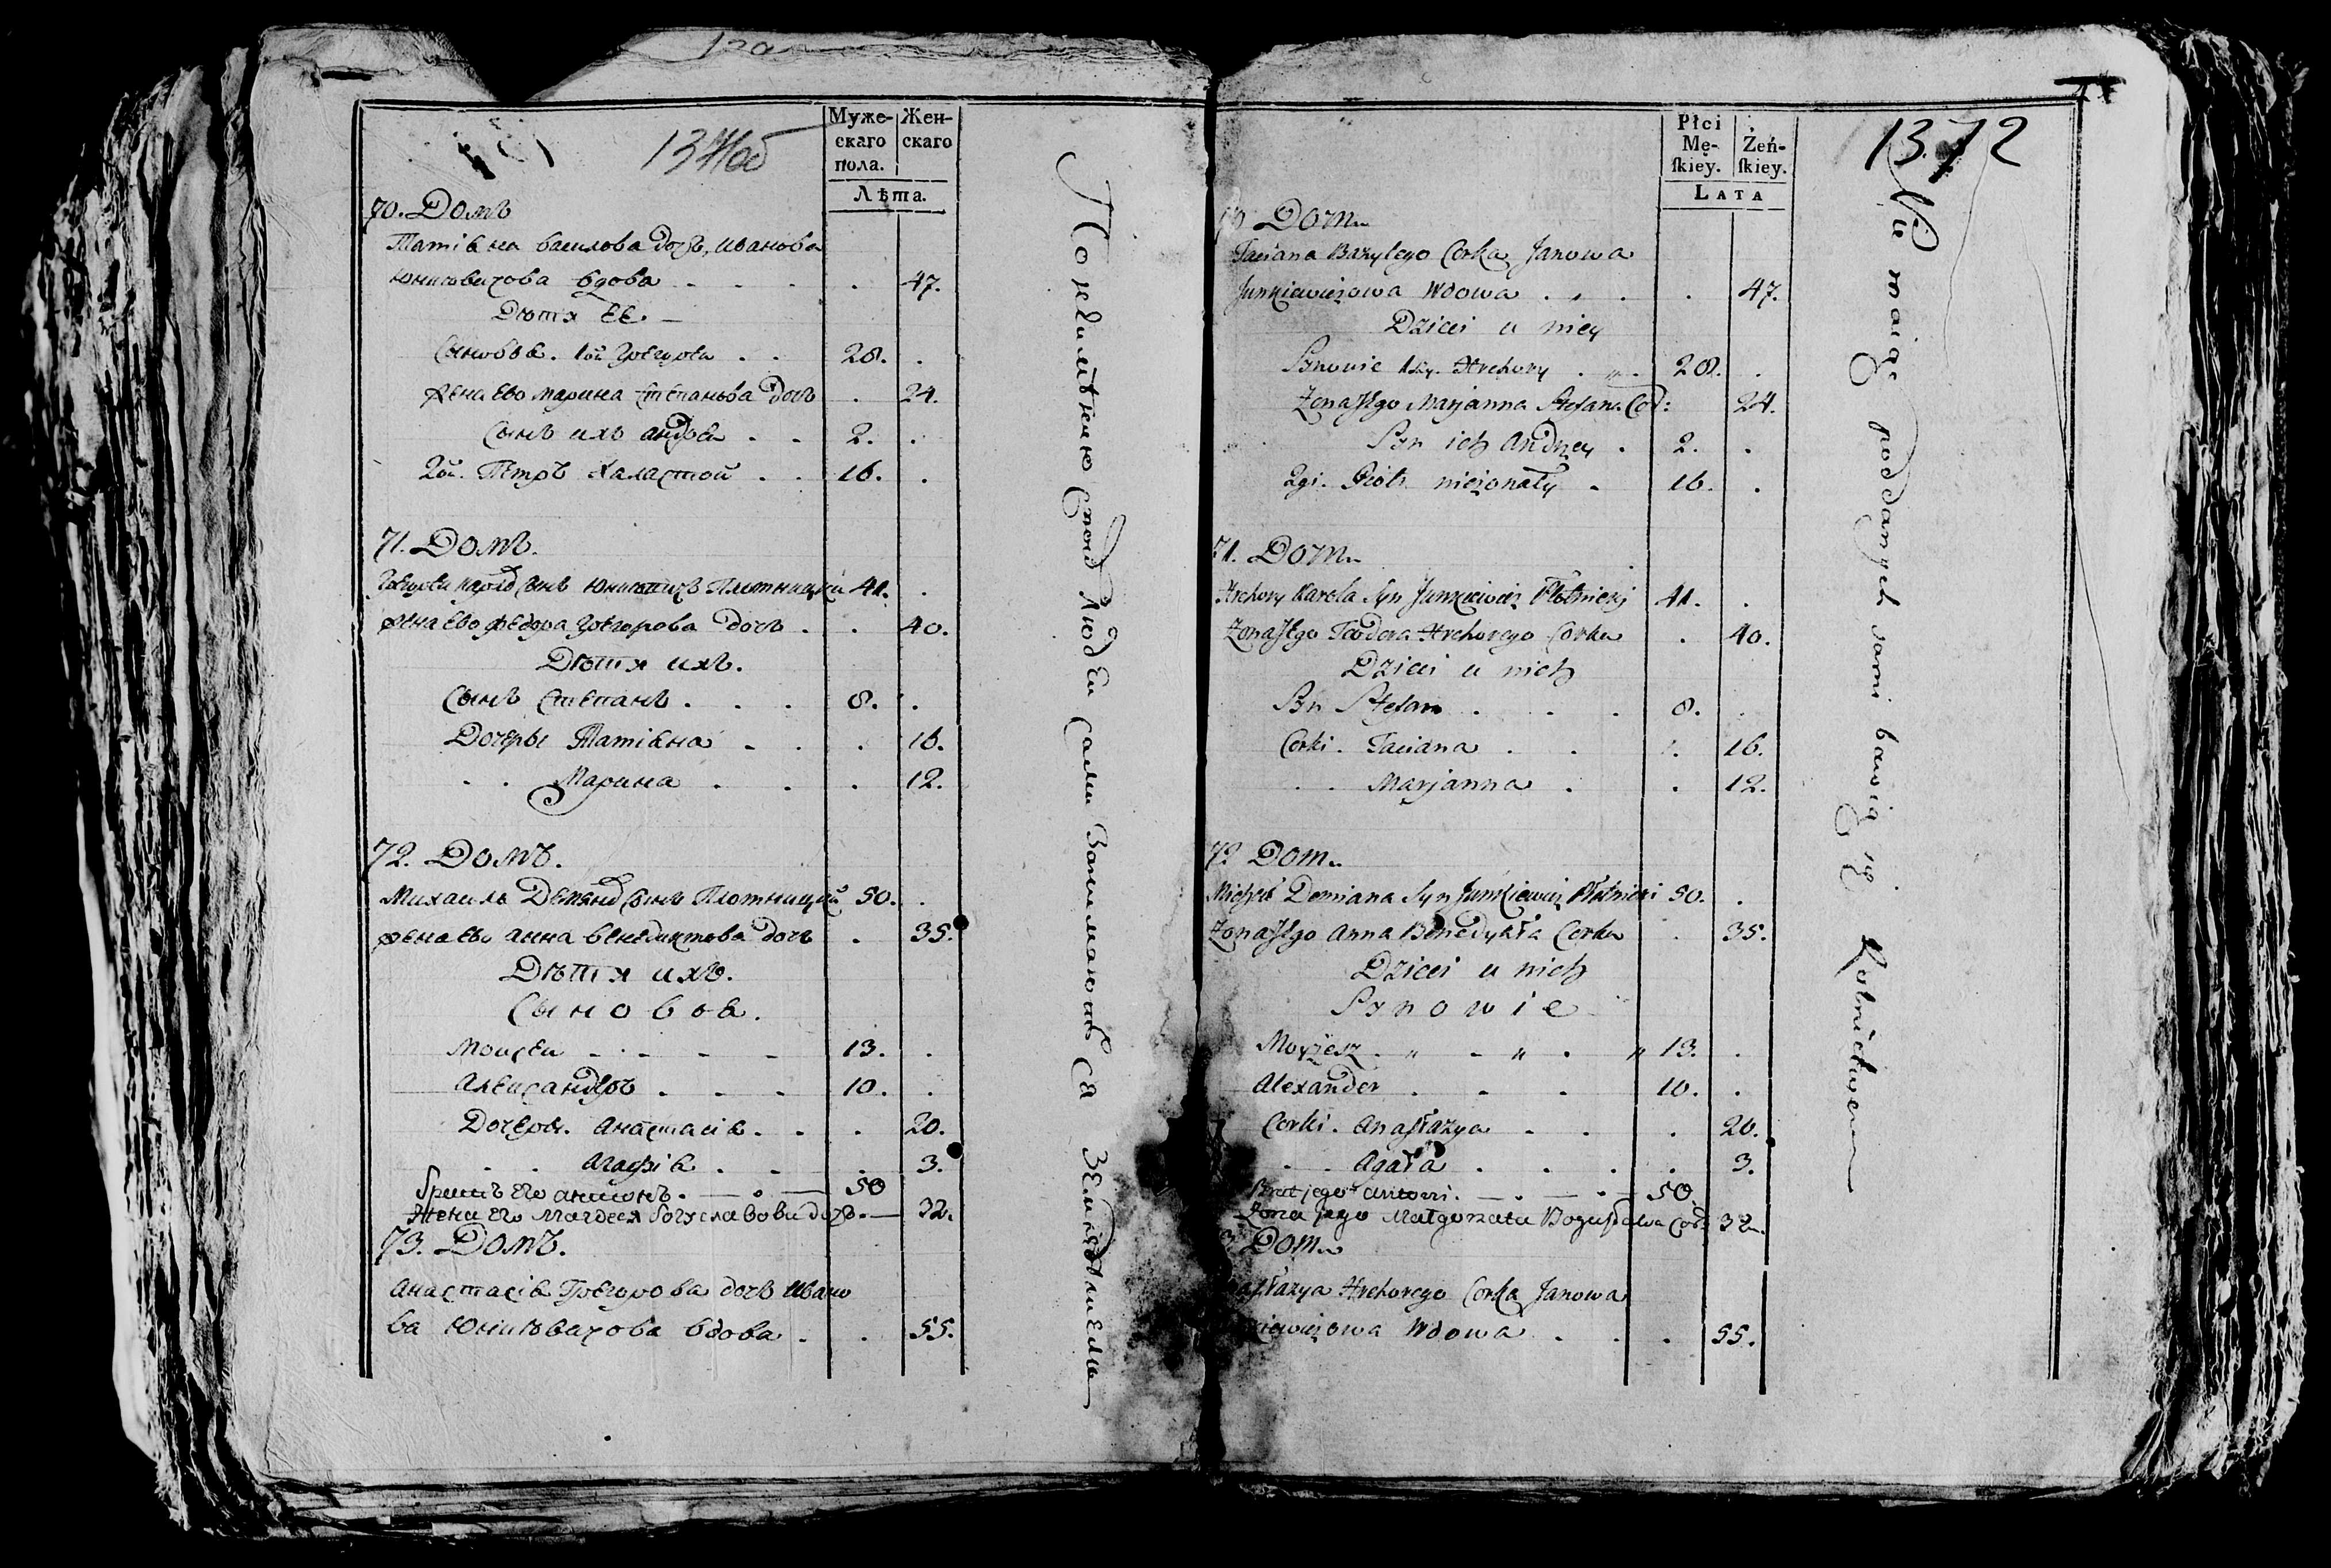 Муже-
скаго
пола.
Жен-
скаго
Лѣта.
70. Домъ
Татіѣна василова дочь, Иванова
Юнкевичова вдова . . . . 47.
Дѣтя ее. —
Сыновья. 1ой Грегорей . . 28. .
жена ево Марина Степанова дочь . 24.
Сынъ ихъ андрей . . 2. .
2ой. Петръ Халастой . . 16. .
71. Домъ.
Грегорей Карол: сынъ Юнкевичъ Плотницкий 41. .
жена ево Федора Грегорова дочь . . 40.
Дѣтя ихъ.
Сынъ Степанъ . . . 8. .
Дочеры Татіѣна . . . 16.
. . Марина . . . 12.
72. Домъ.
Михаиль Демян: сынъ Плотницкий 50. .
жена ево анна Бенедиктова дочь . 35.
Дѣтя ихъ.
Сыновья.
Моисей - . - - - 13. .
Александръ . . . 10. .
Дочеры. Анастасіѣ . . . 20.
. . Агафіѣ . . . 3.
братъ его антонъ. — . — 50
Жена его Магдеся Богуславова дочь. — 32.
73. Домъ.
Анастасіѣ Грегорова дочь Ивано
ва Юнкѣвичова вдова . . 55.
Поселитѣнію Людей сами Занимаютъ ся Земледѣлием
Płci
Mę-
ſkiey.
Żeń-
ſkiey.
LATA
1372
Dom.
Taciana Bazylego Corka Janowa
Junkiewiczowa Wdowa . . . . 47.
Dzieci u niey
Synowie 1szy. Hrehory . . . 28. .
Zona Jego Marjanna Stefana Cor: 24.
Syn ich Andrzey . 2. .
2gi. Piotr nieżonaty . 16. .
71. Dom.
Hrehory Karola Syn Junkiewicz Płotnicki 41. .
Zona Jego Teodora Hrehorego Corka . 40.
Dzieci u nich
Syn Stefan . . . 8. .
Corki. Taciana . . . 16.
. . Marjanna . . 12.
72 Dom.
Michał Demiana Syn Junkiewicz Płotnicki 50. .
Zona Jego Anna Benedykta Corka . 35.
Dzieci u nich
Synowie
Moyżesz . „ - „ . „ 13. .
Alexander . . . 10. .
Corki. Anastazya . . . 20.
. . Agata . . . . 3.
Brat jego Antoni. — . — . — 50.
Zona jego Małgorzata Bogusława Cor: 32.
Dom.
Hrehorego Corka Janowa
Wdowa . . . 55.
Nie maiąc poddanych sami bawią się Rolnictwem